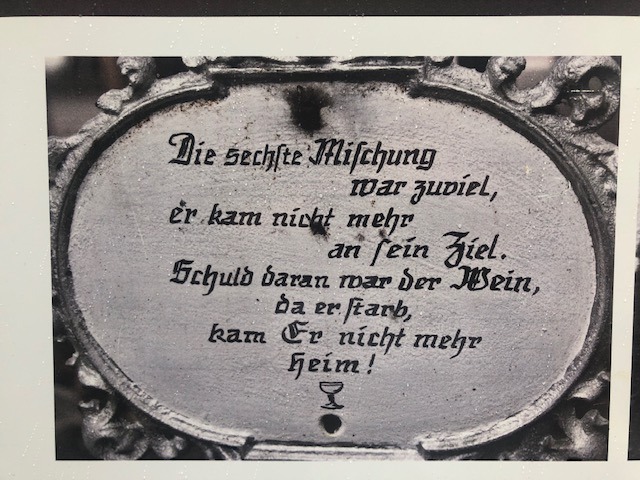 Die sechste Mischung
war zuviel,
er kam nicht mehr
an sein Ziel.
Schuld daran war der Wein,
da er starb,
kam Er nicht mehr
heim!